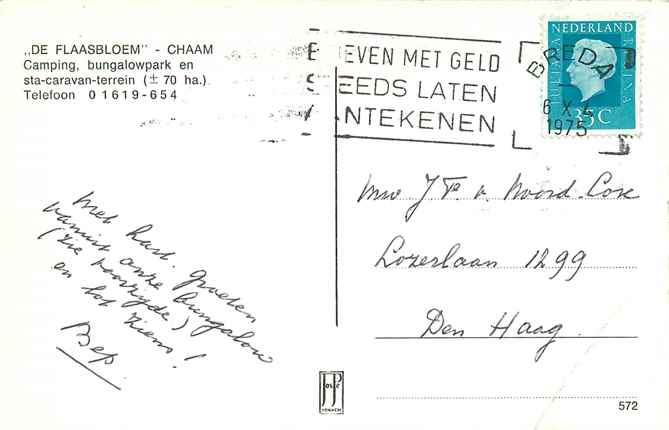 „DE FLAASBLOEM" - CHAAM
Camping, bungalowpark en
sta-caravan-terrein (± 70 ha.)
Telefoon 01619-654
EVEN MET GELD
EEDS LATEN
NTEKENEN
BREDA
6 X
1975
NEDERLAND
35C
Mevr J v. Noord-Cox
Lozerlaan 1299
Den Haag.
Met hart. groeten
vanuit onze bungalow
(zie voorzijde)
en tot ziens!
Bep.
572